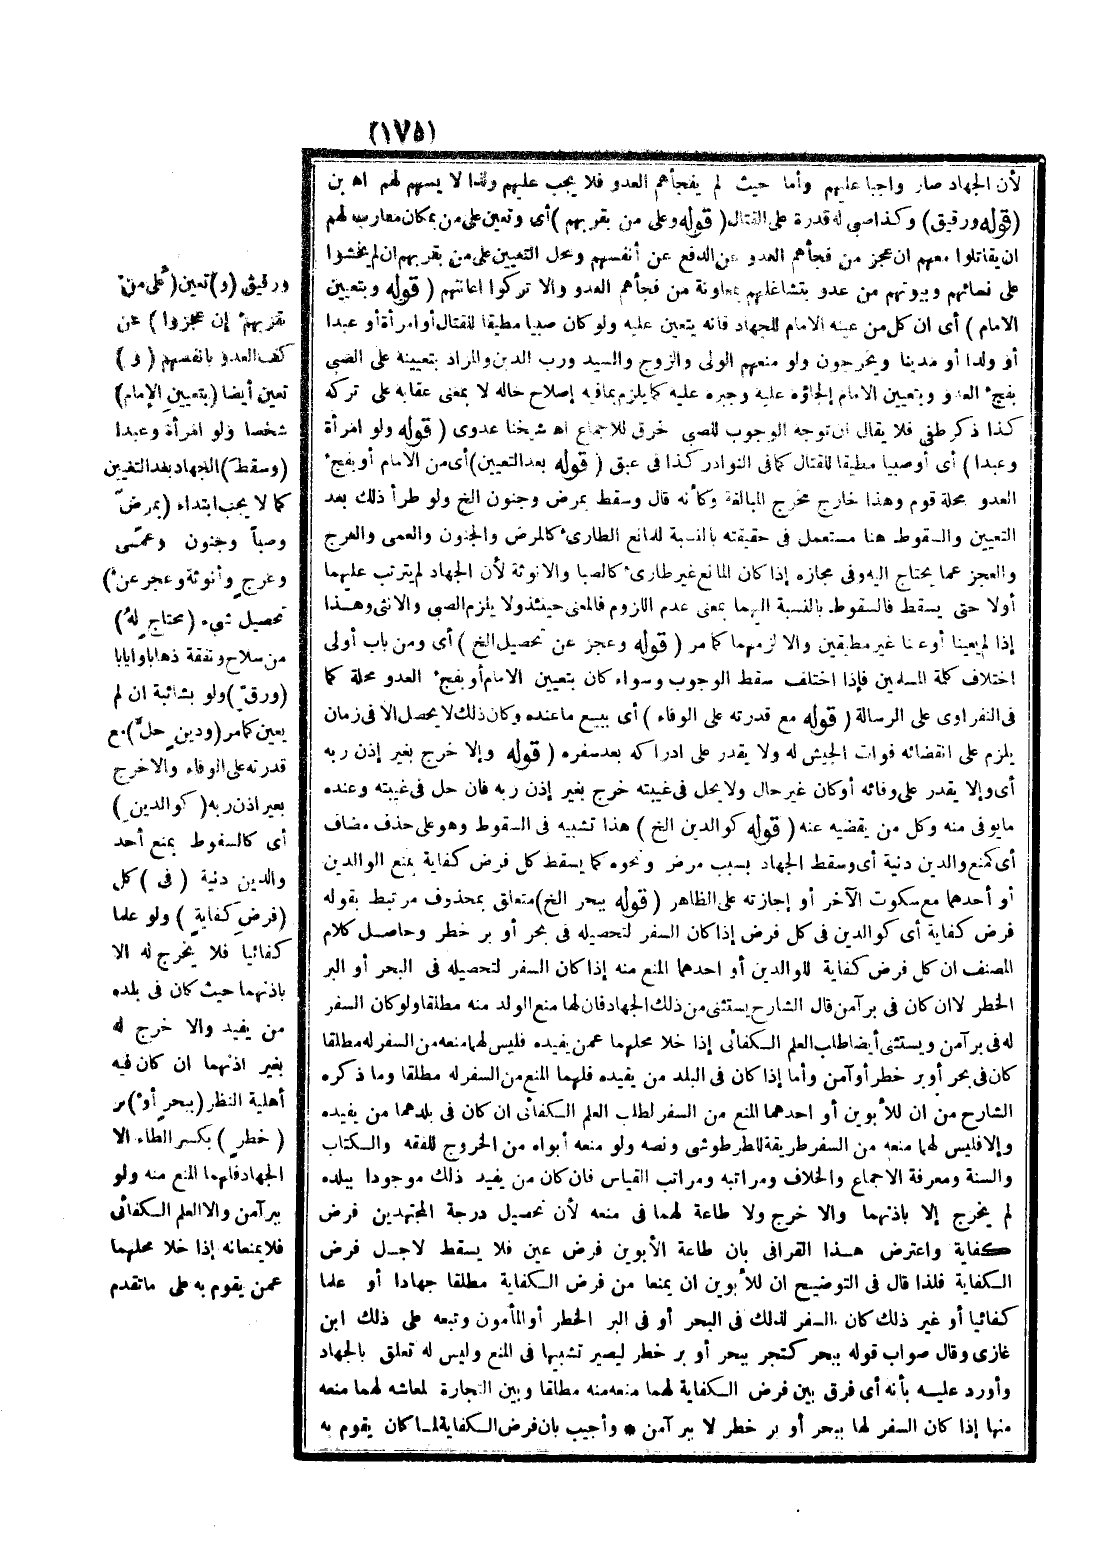 (١٧٥)
لأن الجهاد صار واجبا عليهم وأما حيث لم يفجأهم العدو فلا يجب عليهم ولذا لا يسهم لهم اه بن
(قوله ورقيق) وكذا صبى له قدرة على القتال (قوله وعلى من بقربهم) أى وتعين على من بمكان مقارب لهم
ان يقاتلوا معهم ان عجز من فجأهم العدو عن الدفع عن أنفسهم ومحل التعيين على من بقربهم ان لم يخشوا
على نسائهم وبيوتهم من عدو بتشاغلهم بمعاونة من فجأهم العدو والا تركوا اعانتهم (قوله وبتعيين
الامام) أى ان كل من عينه الامام للجهاد فانه يتعين عليه ولو كان صبيا مطيقا للقتال أو امرأة أو عبدا
أو ولدا أو مدينا ويخرجون ولو منعهم الولى والزوج والسيد ورب الدين والمراد بتعيينه على الصبى
بفجء العدو وبتعيين الامام إلجاؤه عليه وجبره عليه كما يلزم بما فيه إصلاح حاله لا بمعنى عقابه على تركه
كذا ذكر طفى فلا يقال ان توجه الوجوب للصبى خرق للاجماع اه شيخنا عدوى (قوله ولو امرأة
وعبدا) أى أو صبيا مطيقا للقتال كما فى النوادر كذا فى عبق (قوله بعد التعيين) أى من الامام أو بفجء
العدو محلة قوم وهذا خارج مخرج المبالغة وكأنه قال وسقط بمرض وجنون الخ ولو طرأ ذلك بعد
التعيين والسقوط هنا مستعمل فى حقيقته بالنسبة للمانع الطارىء كالمرض والجنون والعمى والعرج
والعجز عما يحتاج اليه وفى مجازه إذا كان المانع غير طارىء كالصبا والانوثة لأن الجهاد لم يترتب عليهما
أولا حتى يسقط فالسقوط بالنسبة اليهما بمعنى عدم اللزوم فالمعنى حينئذ ولا يلزم الصبى والانثى وهذا
إذا لم يعينا أو عينا غير مطيقين والا لزمهما كما مر (قوله وعجز عن تحصيل الخ) أى ومن باب أولى
اختلاف كلمة المسلمين فإذا اختلف سقط الوجوب وسواء كان بتعيين الامام أو بفجء العدو محلة كما
فى النفراوى على الرسالة (قوله مع قدرته على الوفاء) أى ببيع ما عنده وكان ذلك لا يحصل الا فى زمان
يلزم على انقضائه فوات الجيش له ولا يقدر على ادراكه بعد سفره (قوله وإلا خرج بغير إذن ربه
أى وإلا يقدر على وفائه أو كان غير حال ولا يحل فى غيبته خرج بغير إذن ربه فان حل فى غيبته وعنده
ما يوفى منه وكل من يقضيه عنه (قوله كوالدين الخ) هذا تشبيه فى السقوط وهو على حذف مضاف
أى كمنع والدين دنية أى وسقط الجهاد بسبب مرض ونحوه كما يسقط كل فرض كفاية بمنع الوالدين
أو أحدهما مع سكوت الآخر أو إجازته على الظاهر (قوله ببحر الخ) متعلق بمحذوف مرتبط بقوله
فرض كفاية أى كوالدين فى كل فرض إذا كان السفر لتحصيله فى بحر أو بر خطر وحاصل كلام
المصنف ان كل فرض كفاية للوالدين أو احدهما المنع منه إذا كان السفر لتحصيله فى البحر أو البر
الخطر لا ان كان فى بر آمن قال الشارح يستثنى من ذلك الجهاد فان لهما منع الولد منه مطلقا ولو كان السفر
له فى بر آمن ويستثنى أيضا طلب العلم الكفائى إذا خلا محلهما عمن يفيده فليس لهما منعه من السفر له مطلقا
كان فى بحر أو بر خطر أو آمن وأما إذا كان فى البلد من يفيده فلهما المنع من السفر له مطلقا وما ذكره
الشارح من ان للأبوين أو احدهما المنع من السفر لطلب العلم الكفائى ان كان فى بلدهما من يفيده
وإلا فليس لهما منعه من السفر طريقة للطرطوشى ونصه ولو منعه أبواه من الخروج للفقه والكتاب
والسنة ومعرفة الاجماع والخلاف ومراتبه ومراتب القياس فان كان من يفيد ذلك موجودا ببلده
لم يخرج إلا باذنهما والا خرج ولا طاعة لهما فى منعه لأن تحصيل درجة المجتهدين فرض
كفاية واعترض هذا القرافى بان طاعة الأبوين فرض عين فلا يسقط لاجل فرض
الكفاية فلذا قال فى التوضيح ان للأبوين ان يمنعا من فرض الكفاية مطلقا جهادا أو علما
كفائيا أو غير ذلك كان السفر لذلك فى البحر أو فى البر الخطر أو المأمون وتبعه على ذلك ابن
غازى وقال صواب قوله ببحر كتجر ببحر أو بر خطر ليصير تشبيها فى المنع وليس له تعلق بالجهاد
وأورد عليه بأنه أى فرق بين فرض الكفاية لهما منعه منه مطلقا وبين التجارة لمعاشه لهما منعه
منها إذا كان السفر لها ببحر أو بر خطر لا ببر آمن * وأجيب بان فرض الكفاية لما كان يقوم به
ورقيق (و) تعين (على من
بقربهم إن عجزوا) عن
كف العدو بانفسهم (و)
تعين أيضا (بتعيين الإمام)
شخصا ولو امرأة وعبدا
(وسقط) الجهاد بعد التعيين
كما لا يجب ابتداء (بمرض
وصبا وجنون وعمى
وعرج وأنوثة وعجز عن)
تحصيل شىء (محتاج له)
من سلاح ونفقة ذهابا وايابا
(ورق) ولو بشائبة ان لم
يعين كما مر (ودين حل) مع
قدرته على الوفاء والا خرج
بغير اذن ربه (كوالدين)
أى كالسقوط بمنع أحد
والدين دنية (فى) كل
(فرض كفاية) ولو علما
كفائيا فلا يخرج له الا
باذنهما حيث كان فى بلده
من يفيد والا خرج له
بغير اذنهما ان كان فيه
أهلية النظر (ببحر أو) بر
(خطر) بكسر الطاء الا
الجهاد فلهما المنع منه ولو
ببر آمن والا العلم الكفائى
فلا يمنعانه إذا خلا محلهما
عمن يقوم به على ما تقدم